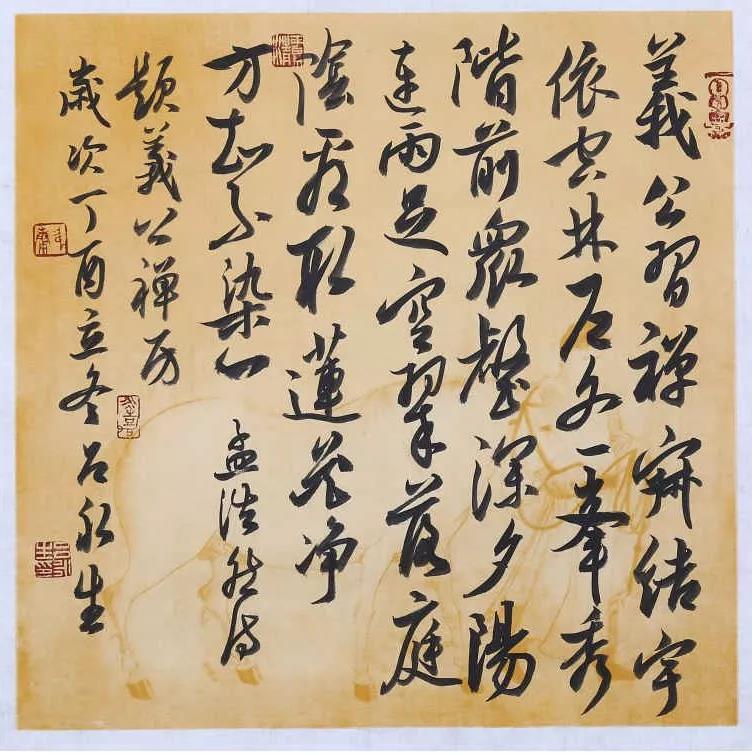 義公習禪寂結宇
依空林戶外一峯秀
階前眾壑深夕陽
連雨足空翠落庭
陰看取蓮花净
方知不染心 孟浩然诗
題義公禅房
歲次丁酉立冬吕永生